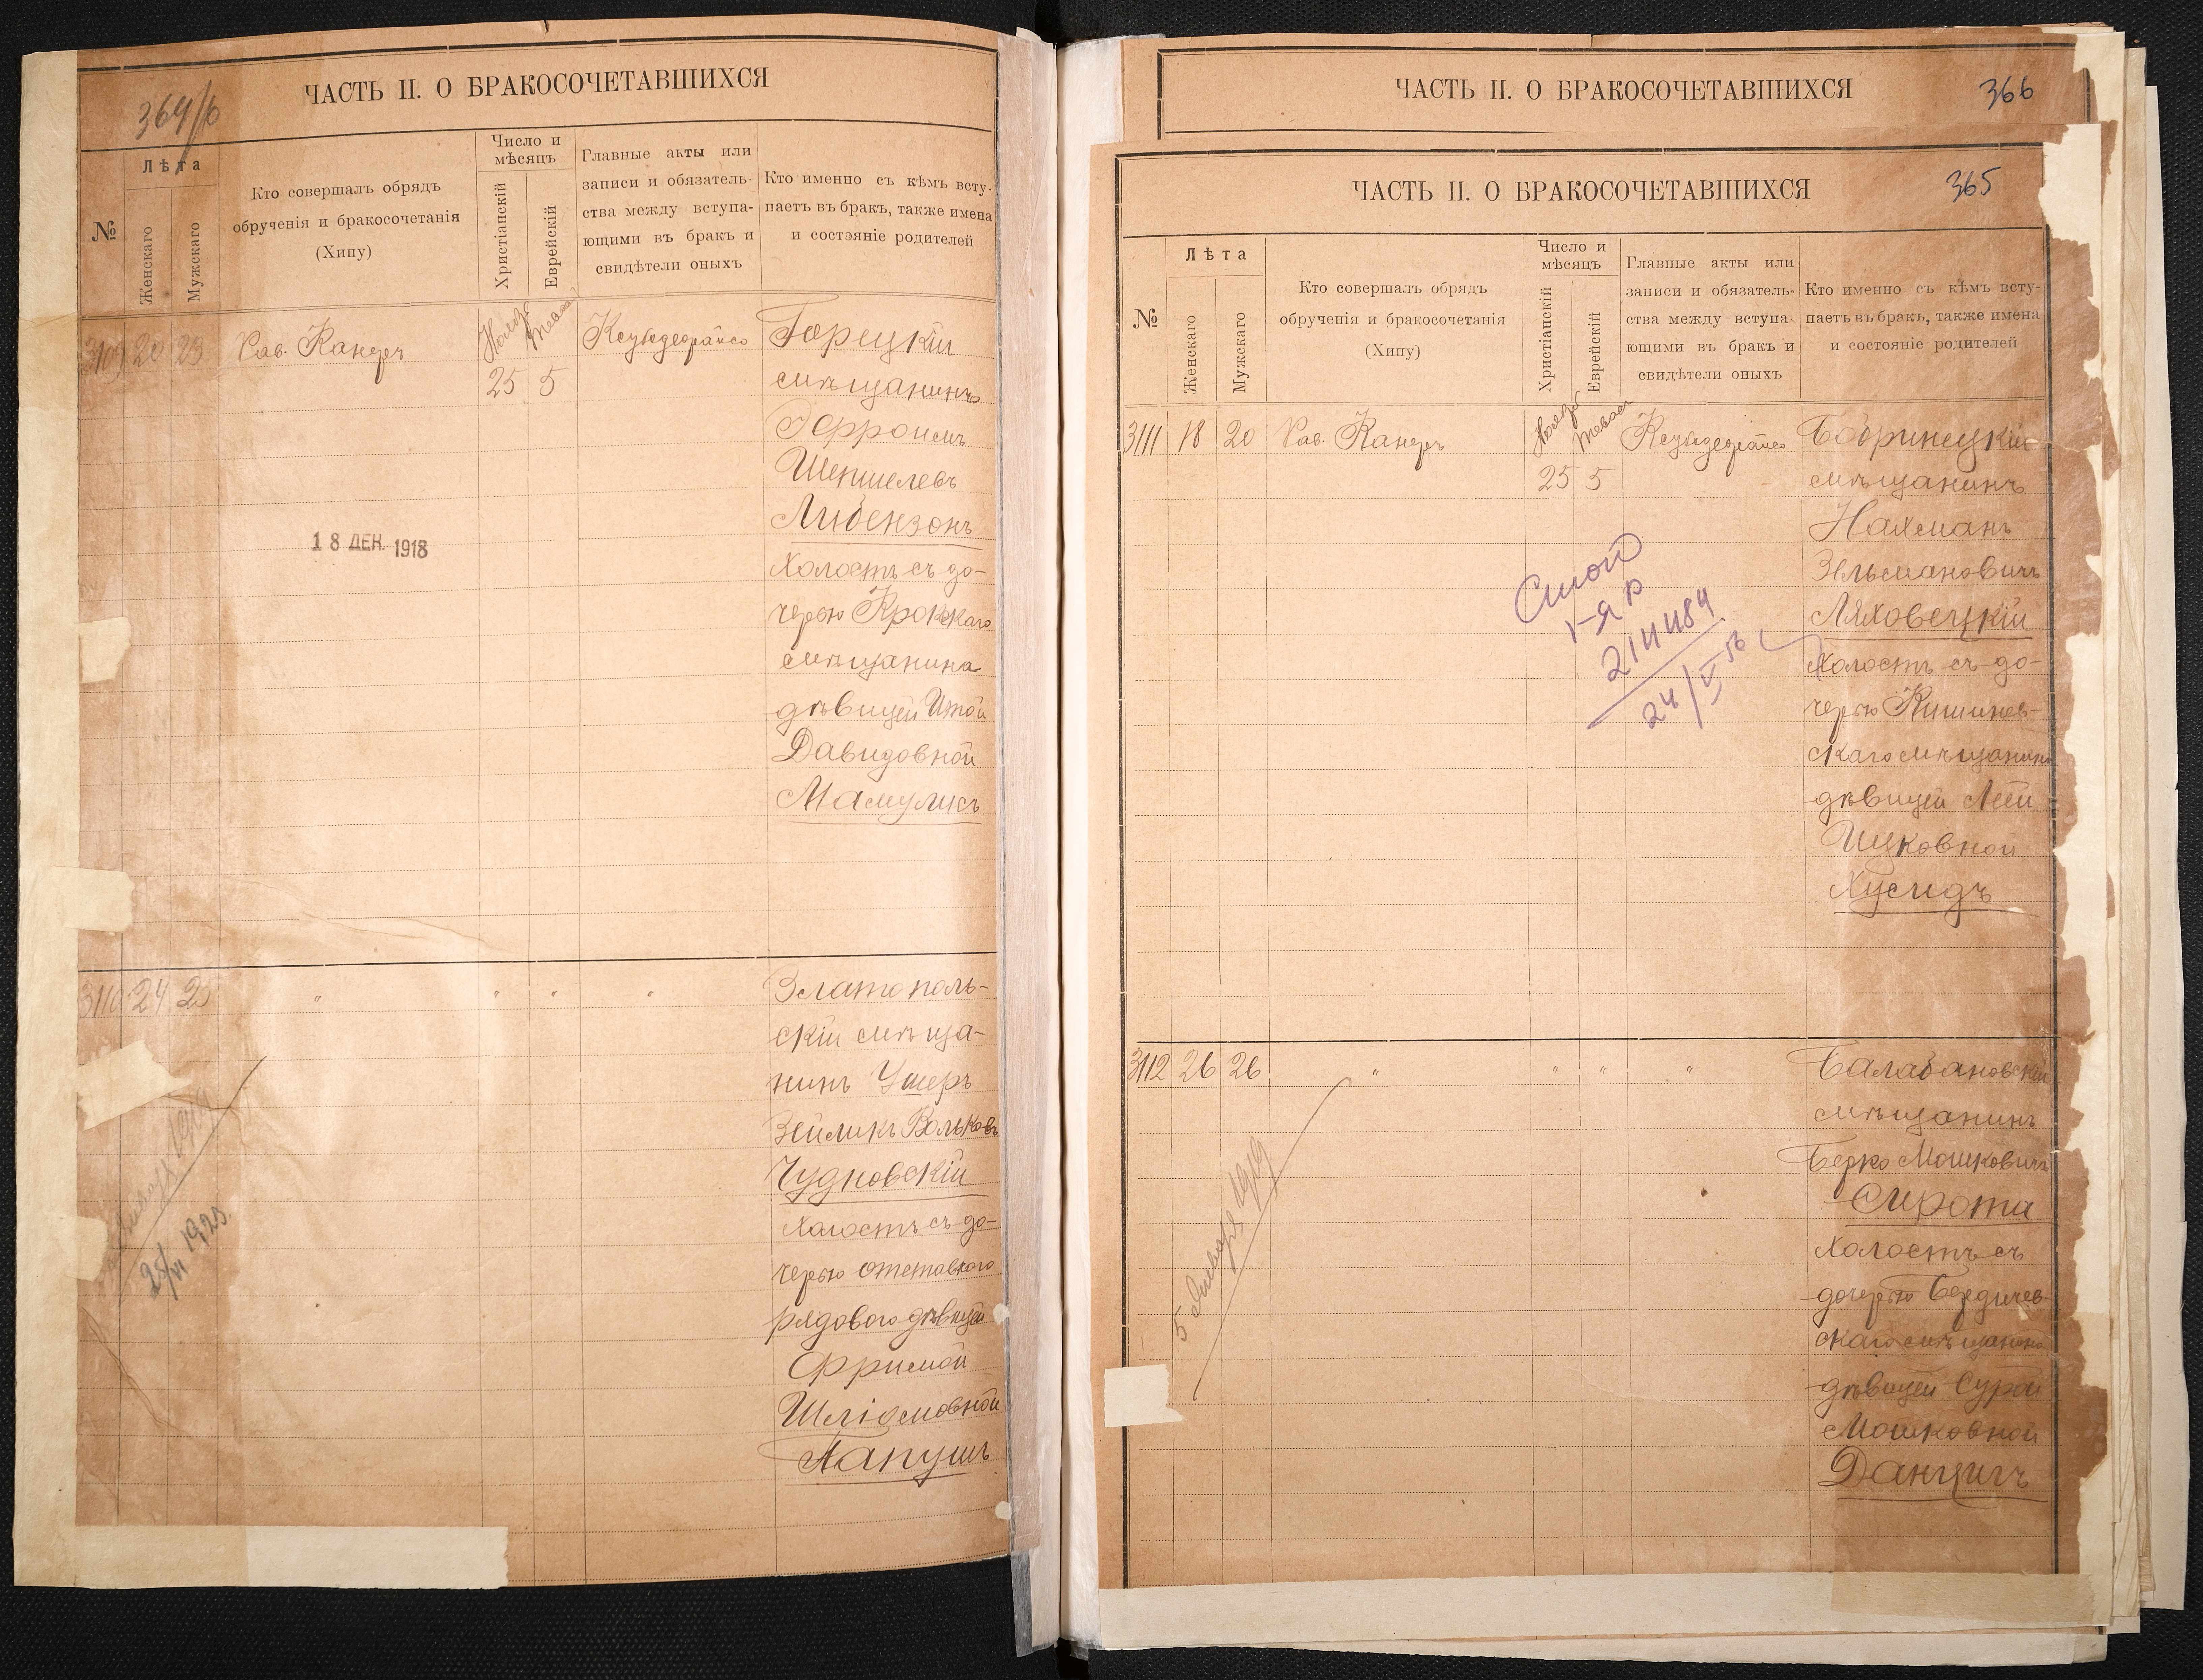 ЧАСТЬ II. О БРАКОСОЧЕТАВШИХСЯ
364/б
№
Лѣта
Женскаго
Мужскаго
Кто совершалъ обрядъ
обрученія и бракосочетанія
(Хипу)
Число и
мѣсяцъ
Христіанскій
Еврейскій
Главные акты или
записи и обязатель-
ства между вступа-
ющими въ бракъ и
свидѣтели оныхъ
Кто именно съ кѣмъ всту-
паетъ въ бракъ, также имена
и состояніе родителей
3109 20 23 Рав. Канеръ
25 5
Горецкій
мѣщанинъ
Эфроимъ
Шепшелевъ
Либензонъ
холостъ съ до-
черью
мѣщанина
дѣвицей Итой
Давидовной
Мамулисъ
18 ДЕК. 1918
3110 24 " " " "
Златополь-
скій мѣща-
нинъ Ушеръ
Зейликъ Вольковъ
Чудновскій
холостъ съ до-
черью отставного
рядового дѣвицей
Фримой
Шліомовной
Папушъ
1919
25/VI 1925.
ЧАСТЬ II. О БРАКОСОЧЕТАВШИХСЯ
366
ЧАСТЬ II. О БРАКОСОЧЕТАВШИХСЯ
365
№
Лѣта
Женскаго
Мужскаго
Кто совершалъ обрядъ
обрученія и бракосочетанія
(Хипу)
Число и
мѣсяцъ
Христіанскій
Еврейскій
Главные акты или
записи и обязатель-
ства между вступа-
ющими въ бракъ и
свидѣтели оныхъ
Кто именно съ кѣмъ всту-
паетъ въ бракъ, также имена
и состояніе родителей
3111 18 20 Рав. Канеръ
25 5
Бобринецкій
мѣщанинъ
Нахманъ
Зельмановичъ
Ляховецкій
холостъ съ до-
черью Кишинев-
скаго мѣщанина
дѣвицей Леей
Ицковной
Хусидъ
214484
24/VI 56
3112 26 26 " " " "
Балабановскій
мѣщанинъ
Берко Мошковичъ
Сирота
холостъ съ
дочерью Бердичев-
скаго мѣщанина
дѣвицей Сурой
Мошковной
Данцигъ
5 Января 1919